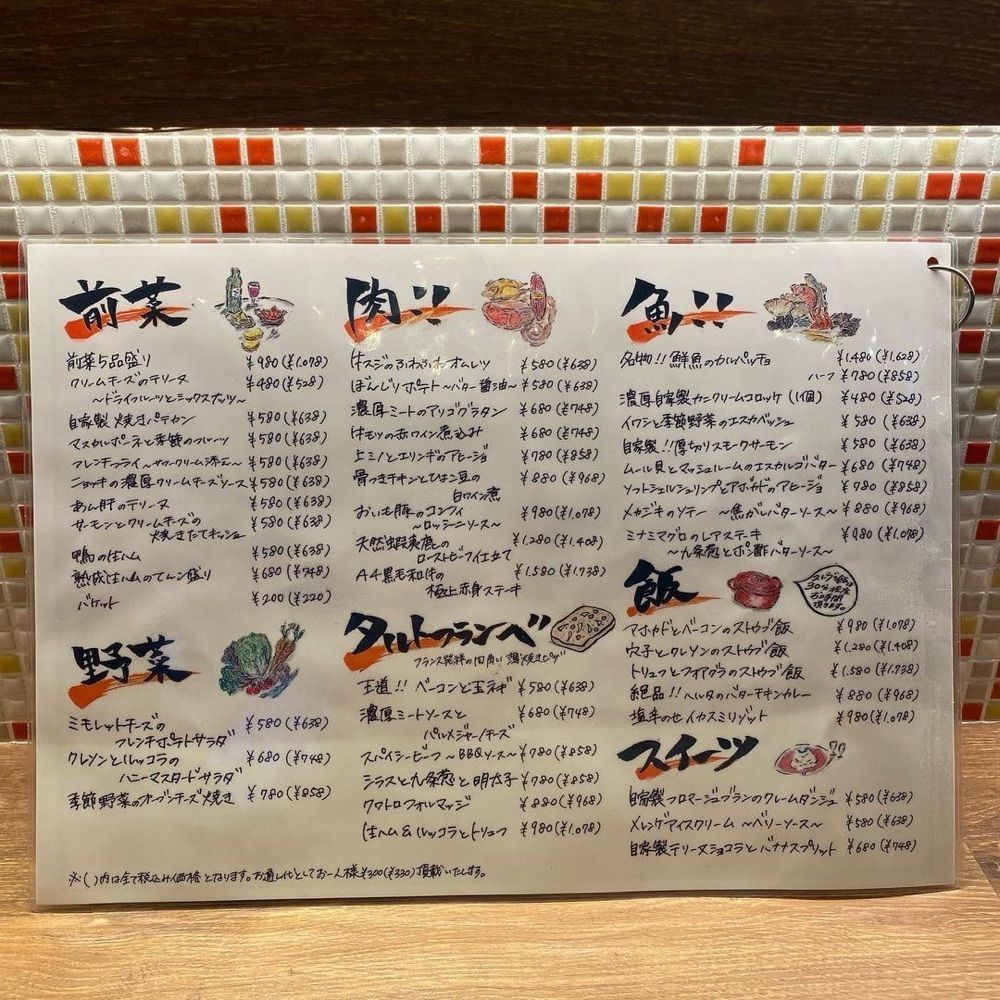 前菜
前菜5品盛り ¥980(¥1,078)
クリームチーズのテリーヌ ¥480(¥528)
～ドライフルーツとミックスナッツ～
自家製 焼きパテカン ¥580(¥638)
マスカルポーネと季節のフルーツ ¥580(¥638)
フレンチフライ～サワークリーム添え～ ¥580(¥638)
ニョッキの濃厚クリームチーズソース ¥580(¥638)
あん肝のテリーヌ ¥580(¥638)
サーモンとクリームチーズの ¥580(¥638)
焼きたてキッシュ
鴨の生ハム ¥580(¥638)
熟成生ハムのてんこ盛り ¥680(¥748)
バケット ¥200(¥220)
野菜
ミモレットチーズの ¥580(¥638)
フレンチポテトサラダ
クレソンとルッコラの ¥680(¥748)
ハニーマスタードサラダ
季節野菜のオーブンチーズ焼き ¥780(¥858)
肉!!
牛スジのふわふわオムレツ ¥580(¥638)
ぼんじりポテト～バター醤油～ ¥580(¥638)
濃厚ミートのアリゴグラタン ¥680(¥748)
牛モツの赤ワイン煮込み ¥680(¥748)
上ミノとエリンギのアヒージョ ¥780(¥858)
骨つきチキンとひよこ豆の ¥880(¥968)
白ワイン煮
おいも豚のコンフィ ¥980(¥1,078)
～ロッシーニソース～
天然蝦夷鹿の ¥1,280(¥1,408)
ローストビーフ仕立て
A4黒毛和牛の ¥1,580(¥1,738)
極上赤身ステーキ
タルトフランベ
フランス発祥の四角い薄焼きピザ
王道!! ベーコンと玉ネギ ¥580(¥638)
濃厚ミートソースと ¥680(¥748)
パルメジャーノチーズ
スパイシービーフ～BBQソース～ ¥780(¥858)
シラスと九条葱と明太子 ¥780(¥858)
クワトロフォルマッジ ¥880(¥968)
生ハム&ルッコラとトリュフ ¥980(¥1,078)
魚!!
名物!! 鮮魚のカルパッチョ ¥1,480(¥1,628)
ハーフ ¥780(¥858)
濃厚自家製カニクリームコロッケ(1個) ¥480(¥528)
イワシと季節野菜のエスカベッシュ ¥580(¥638)
自家製!!厚切りスモークサーモン ¥580(¥638)
ムール貝とマッシュルームのエスカルゴバター ¥680(¥748)
ソフトシェルシュリンプとアボカドのアヒージョ ¥780(¥858)
メカジキのソテー ～焦がしバターソース～ ¥880(¥968)
ミナミマグロのレアステーキ ¥980(¥1,078)
～九条葱とポン酢バターソース～
飯
ストウブ飯は
30分程度
お時間
頂きます。
アボカドとベーコンのストウブ飯 ¥980(¥1,078)
穴子とクレソンのストウブ飯 ¥1,280(¥1,408)
トリュフとフォアグラのストウブ飯 ¥1,580(¥1,738)
絶品!! ヘルタのバターチキンカレー ¥880(¥968)
塩辛のせイカスミリゾット ¥980(¥1,078)
スイーツ
自家製フロマージュブランのクレームダンジュ ¥580(¥638)
メレンゲアイスクリーム ～ベリーソース～ ¥580(¥638)
自家製テリーヌショコラとバナナスプリット ¥680(¥748)
※( )内は全て税込み価格となります。お通し代としてお一人様¥300(¥330)頂戴いたします。